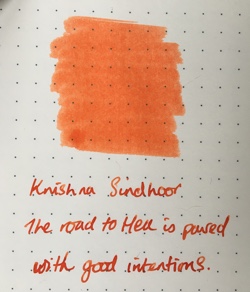 Krishna Sindhoor
The road to Hell is paved
with good intentions.